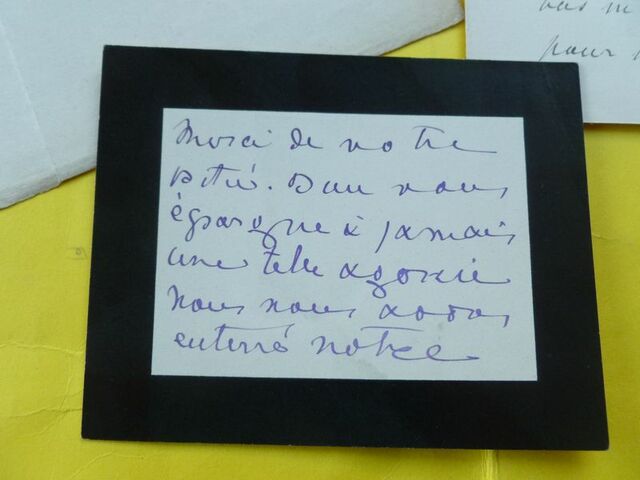 Merci de votre
pitié. Dieu vous
épargne à jamais
une telle agonie
Nous nous avons
enterré notre
pour